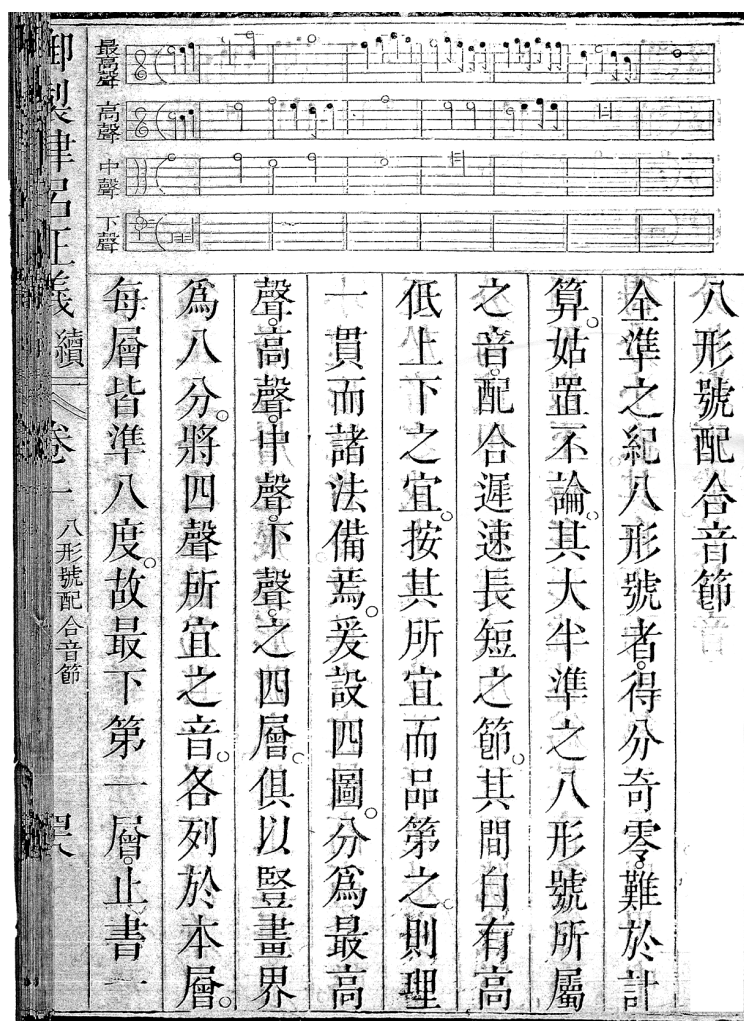 最高聲
高聲
中聲
下聲
八形號配合音節
全準之紀八形號者。得分奇零。難於計
算。姑置不論。其大半準之八形號所屬
之音。配合遲速長短之節。其間自有高
低上下之宜。按其所宜而品第之。則理
一貫而諸法備焉。爰設四圖。分爲最高
聲。高聲。中聲。下聲。之四層。俱以豎畫界
爲八分。將四聲所宜之音。各列於本層。
每層皆準八度。故最下第一層。止書一
御製律呂正義 續 卷一 八形號配合音節